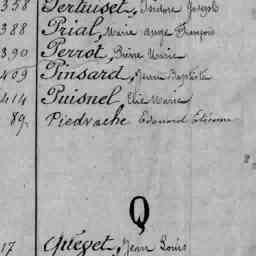 358 Pertuiset, Isidore Joseph
388 Prial, Marie Ange François
390 Perrot, Pierre Marie
409 Pinsard, Jean Baptiste
414 Puisnel, Elie Marie
89 Piedvache Edouard Etienne
Q
17 Quéget, Jean Louis